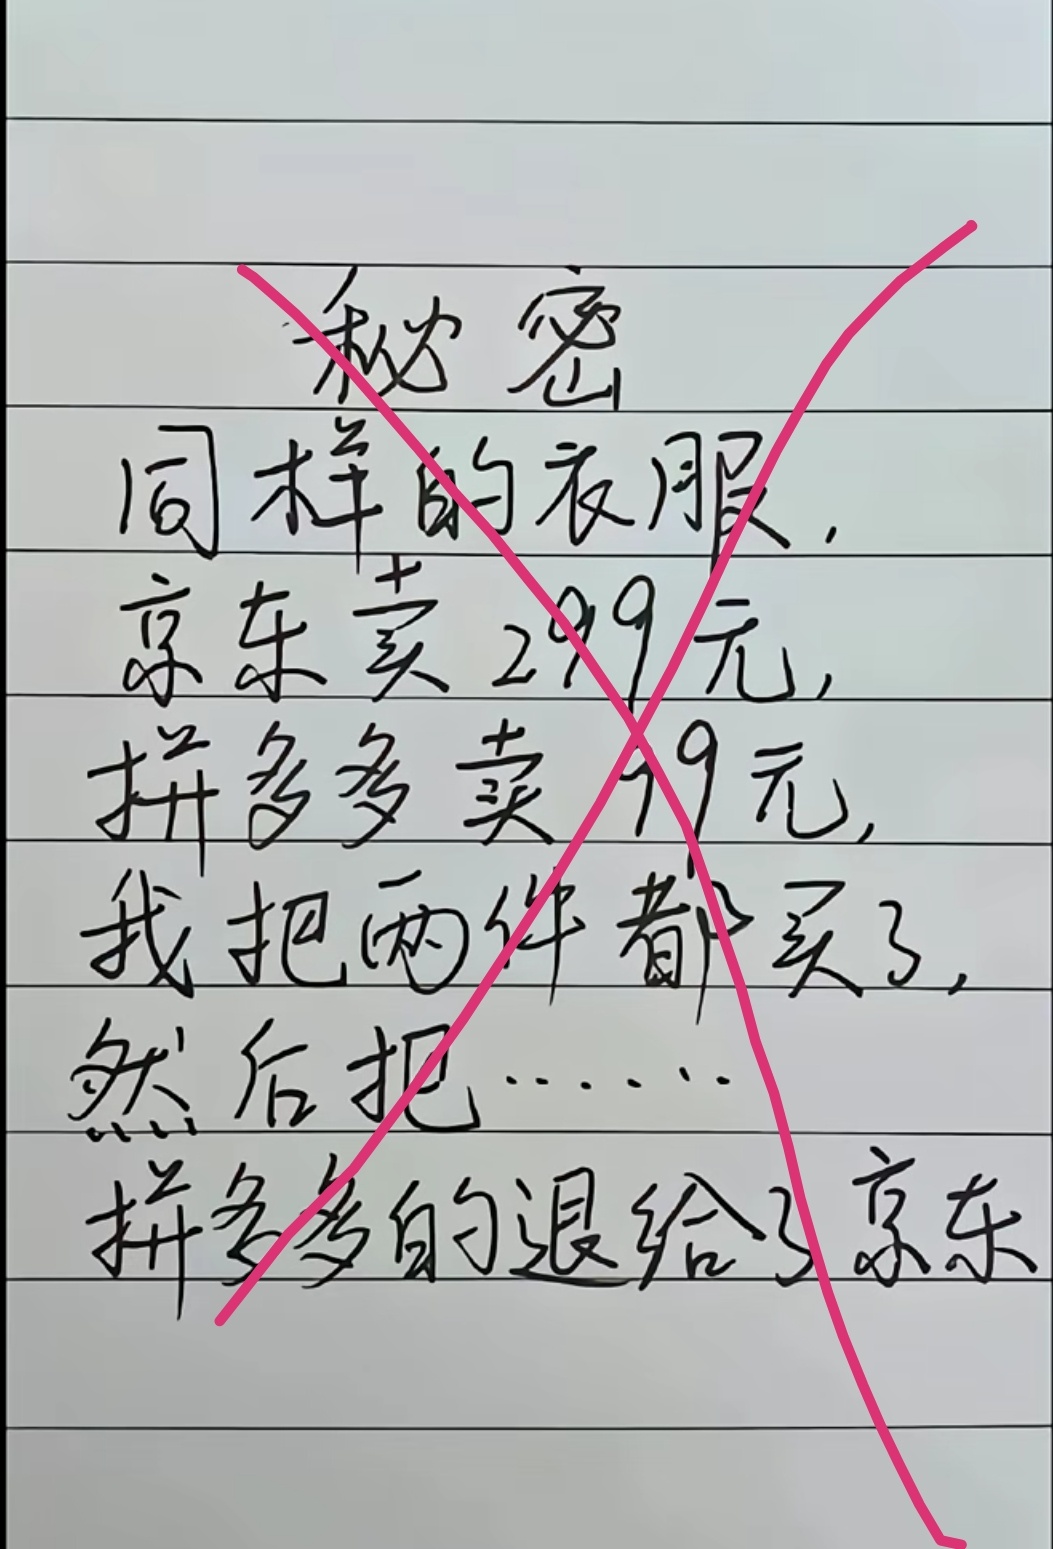 秘密
同样的衣服,
京东卖299元,
拼多多卖99元,
我把两件都买了,
然后把……
拼多多的退给了京东